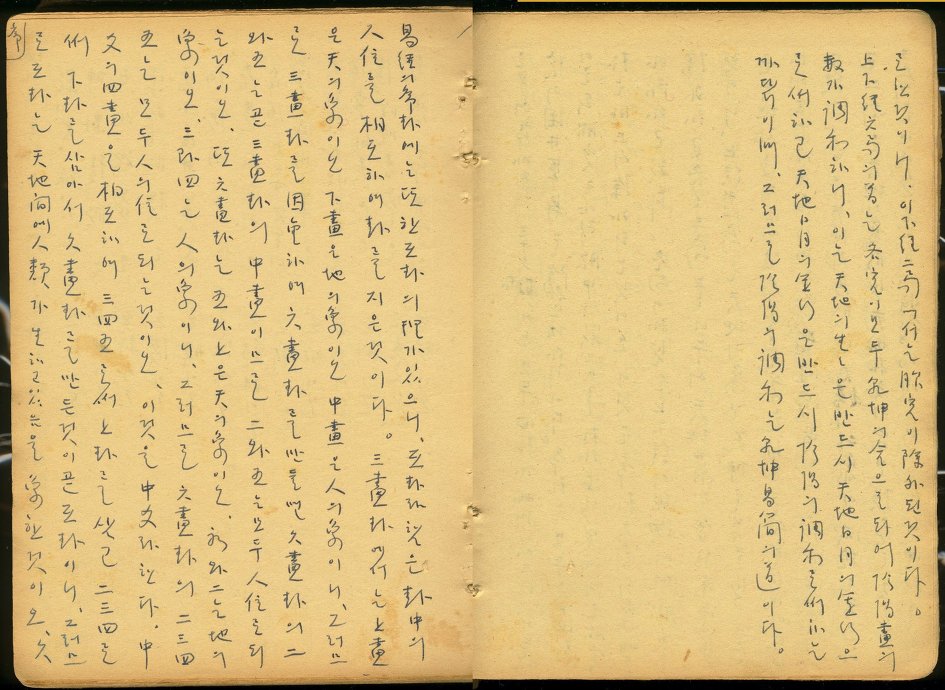 로 된것이니, 이下經二局에서는 胎宮이 除外된것이다。
上下經六局의 首는 各宮이 모두 乾坤의 合으로 되어 陰陽畫의
數가 調和하니, 이는 天地의 生은 반드시 天地日月의 으
로써 하고 天地日月의 은 반드시 陰陽의 調和로써 하는
까닭이며, 그러므로 陰陽의 調和는 乾坤易簡의 道이다。
易經의 卦에는 또한 互卦의 理가 있으니, 互卦라 함은 卦中의
人位를 相互하여 卦를 지은것이다。三畫卦에서는 上畫
은 天의 象이오 下畫은 地의 象이오 中畫은 人의 象이니, 그러므
로 三畫卦를 因重하여 六畫卦를 만들면 六畫卦의 二
와 五는 곧 三畫卦의 中畫이므로 二와 五는 모두 人位로 되
는것이오, 또 六畫卦는 五와 上은 天의 象이오, 初와 二는 地의
象이오, 三과 四는 人의 象이니, 그러므로 六畫卦의 二三四
五는 모두 人의 位로 되는것이오, 이것을 中爻라 한다. 中
爻의 四畫을 相互하여 三四五로써 上卦를 삼고 二三四로
써 下卦를 삼아서 六畫卦를 만든것이 곧 互卦이니, 그러므
로 互卦는 天地間에 人類가 生하고있음을 象한것이오, 六